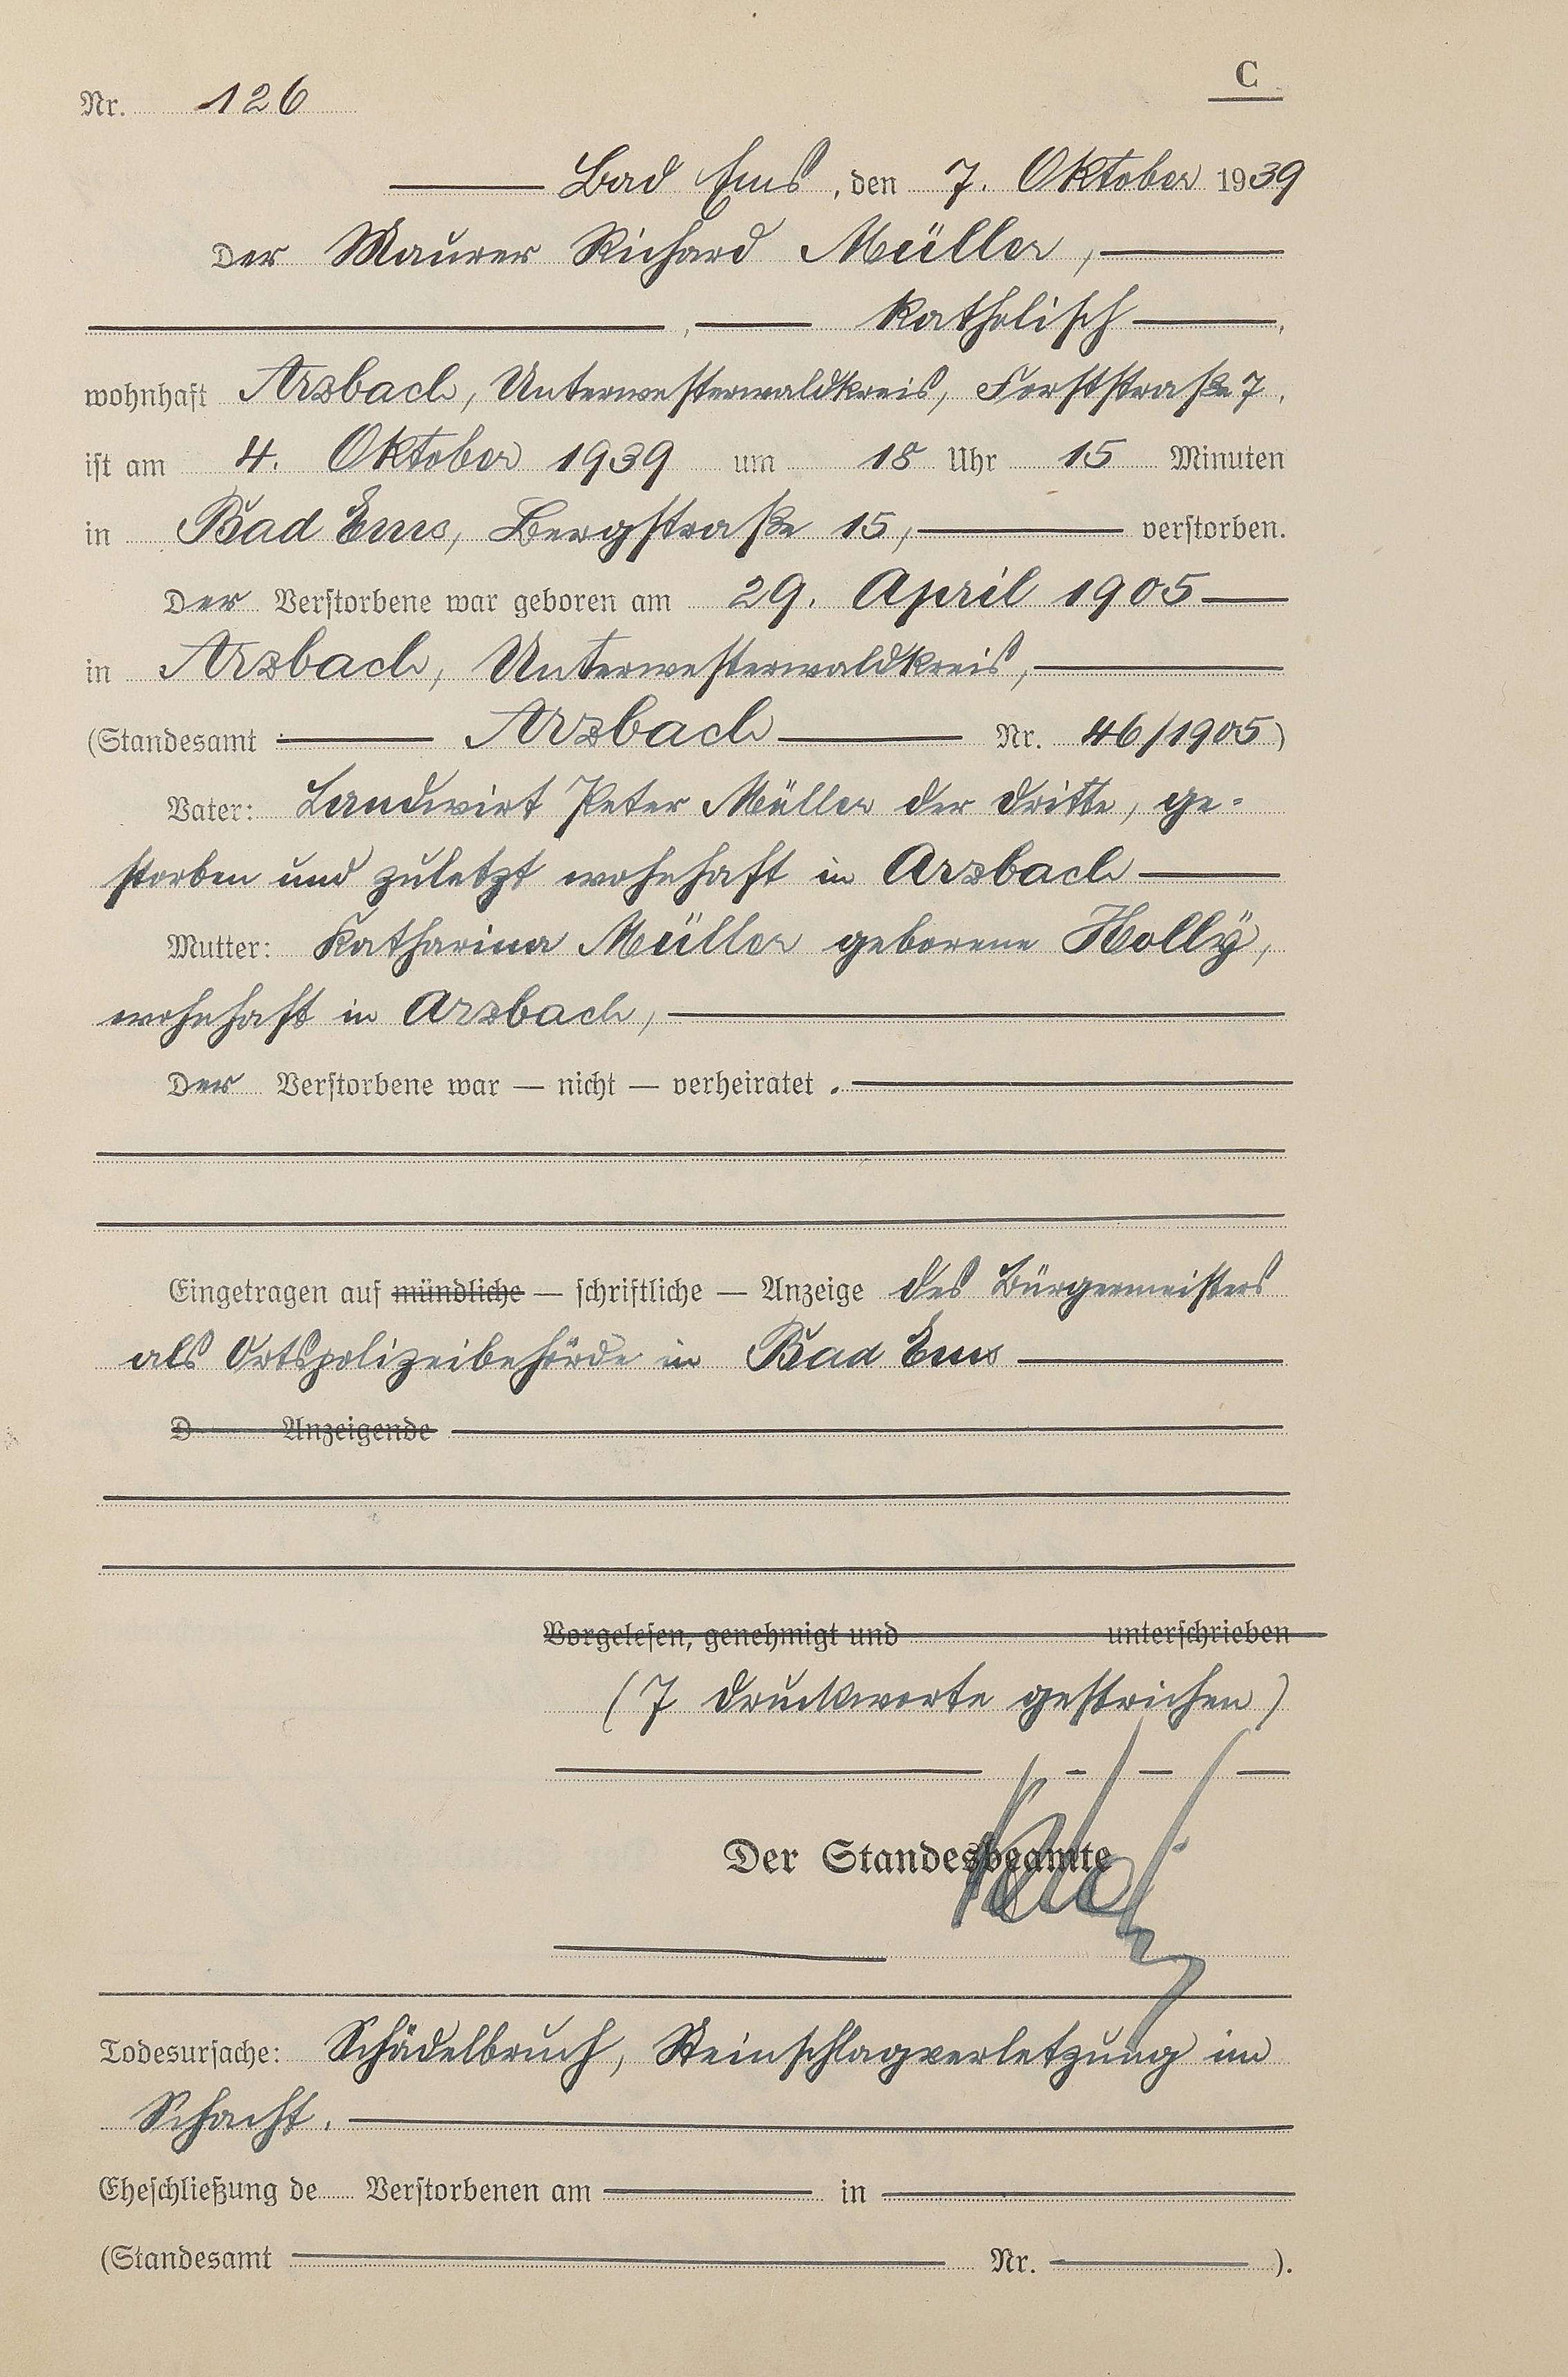 Nr. 126
C
Bad Ems, den 7. Oktober 1939
Der Maurer Richard Müller,
, katholisch,
wohnhaft Arzbach, Unterwesterwaldkreis, Forststraße 7,
ist am 4. Oktober 1939 um 18 Uhr 15 Minuten
in Bad Ems, Bergstraße 15, verstorben.
Der Verstorbene war geboren am 29. April 1905
in Arzbach, Unterwesterwaldkreis,
(Standesamt Arzbach Nr. 46/1905)
Vater: Landwirt Peter Müller der dritte, ge-
storben und zuletzt wohnhaft in Arzbach
Mutter: Katharina Müller geborene Holly,
wohnhaft in Arzbach,
Der Verstorbene war — nicht — verheiratet.
Eingetragen auf mündliche — schriftliche — Anzeige des Bürgermeisters
als Ortspolizeibehörde in Bad Ems
D Anzeigende
Vorgelesen, genehmigt und unterschrieben
(7 Druckworte gestrichen)
Der Standesbeamte
Todesursache: Schädelbruch, Steinschlagverletzung im
Schacht.
Eheschließung de Verstorbenen am in
(Standesamt Nr. ).